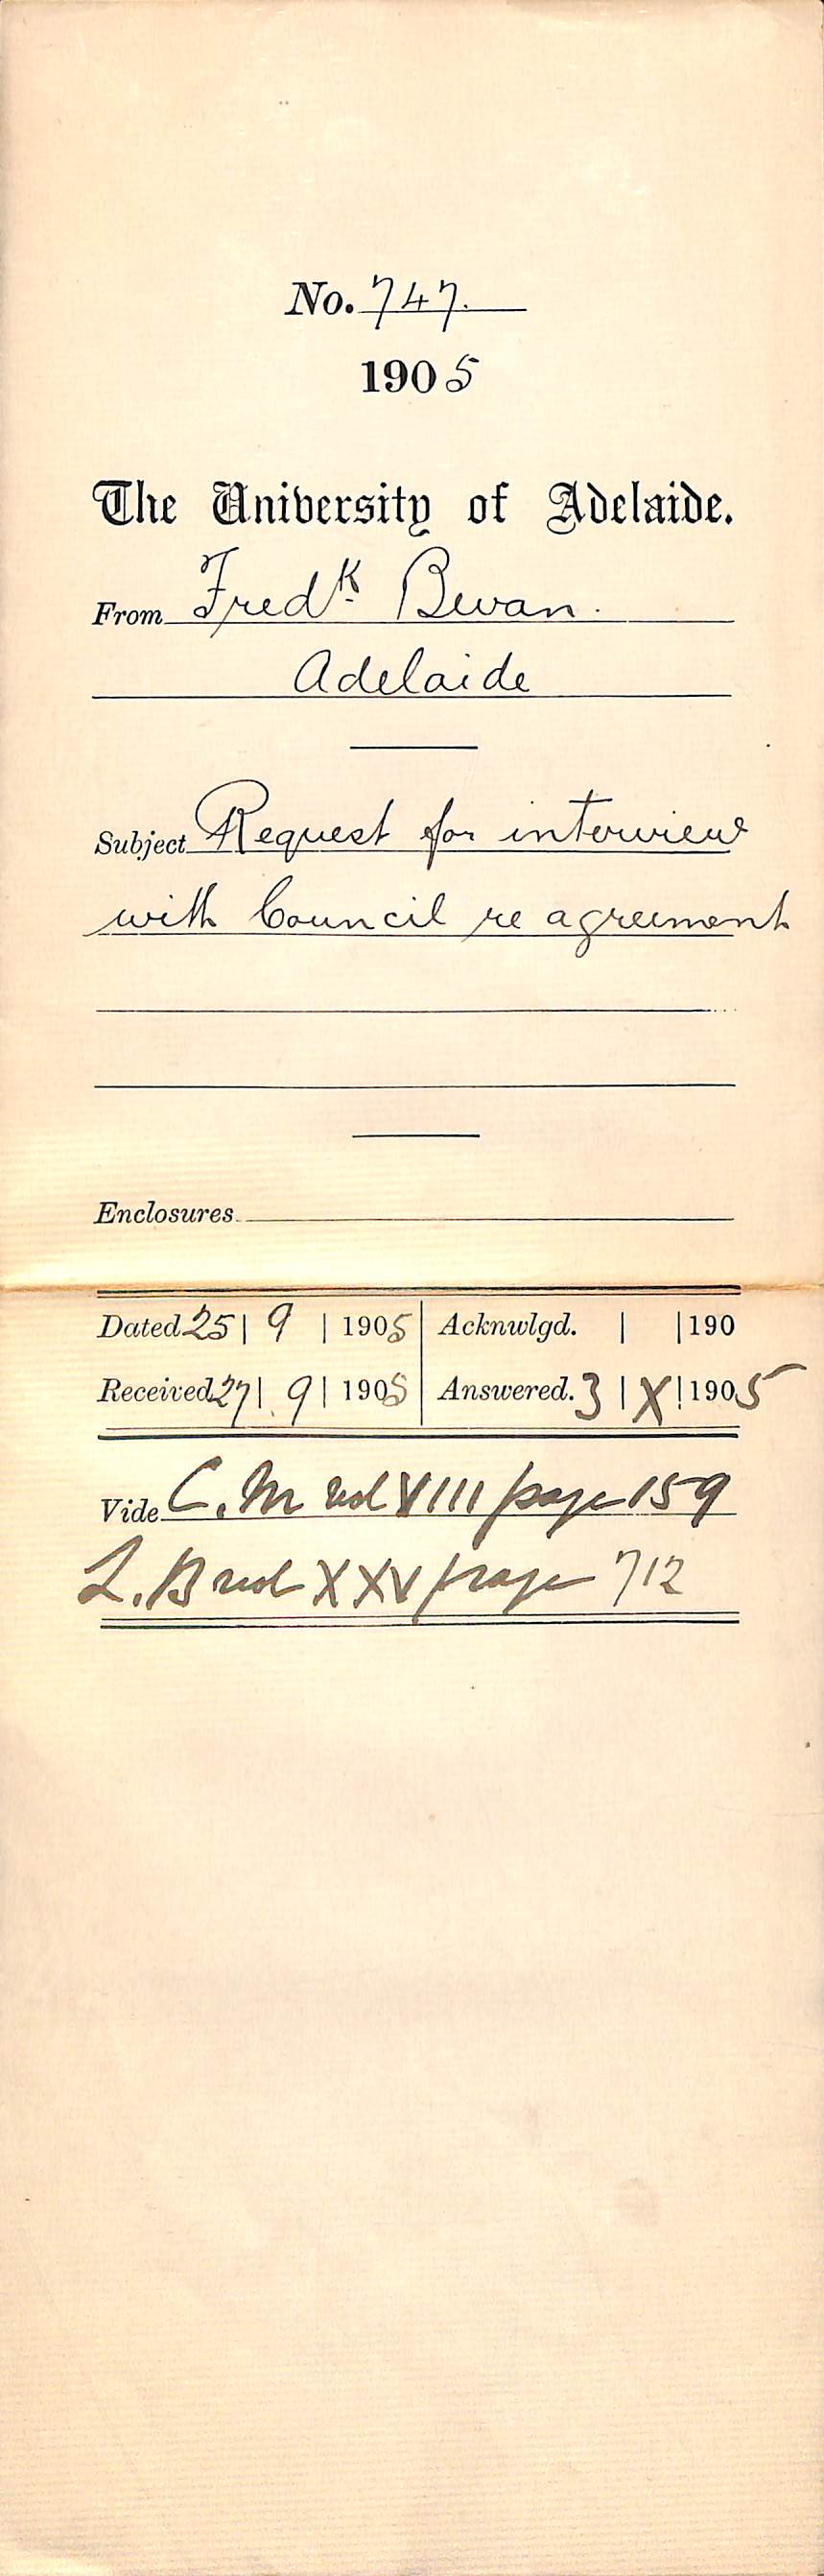 No. 747.
1905
The University of Adelaide.
From Fredk. Bevan.
Adelaide
Subject Request for interview
with Council re agreement
Enclosures
Dated 25 | 9 | 1905 | Acknwlgd. | | 190
Received 27 | 9 | 1905 | Answered. 3 | X | 1905
Vide C. M vol VIII page 159
L. B vol XXV page 712